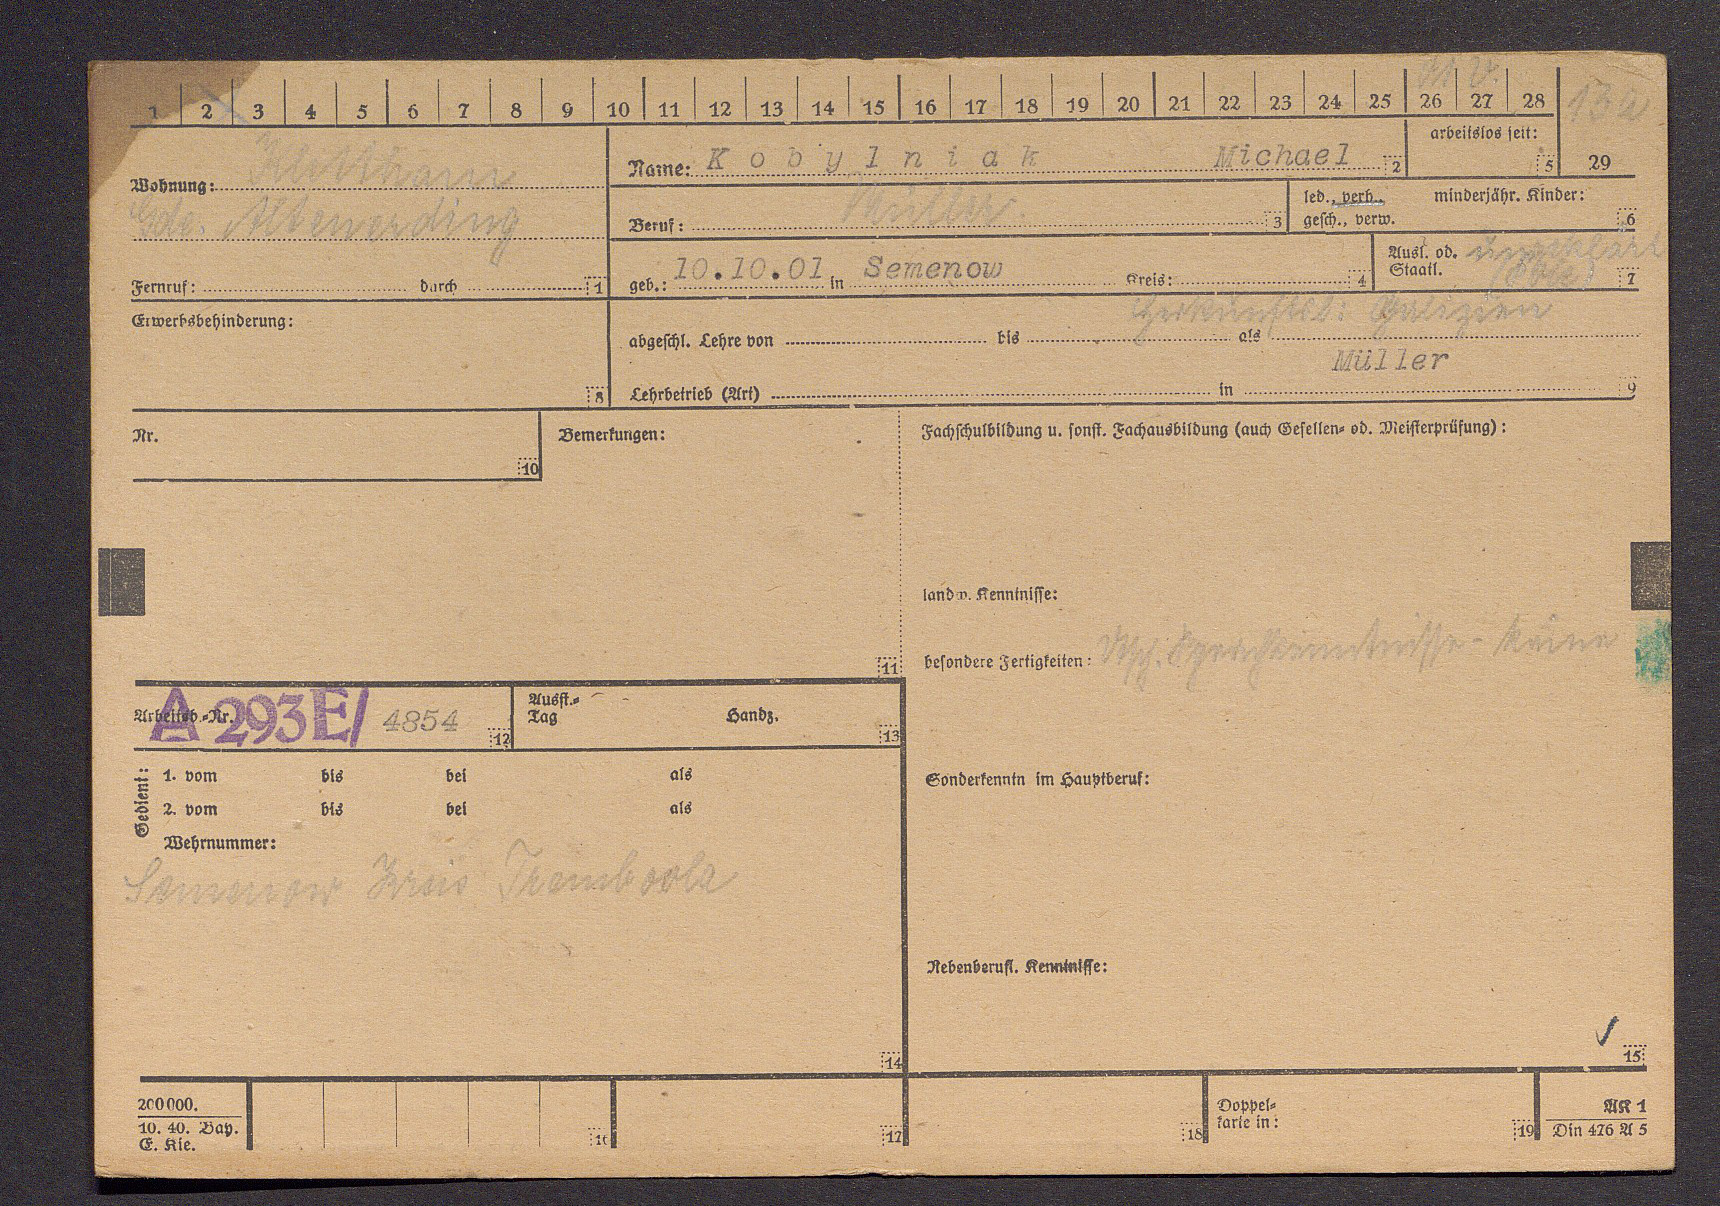 1 2 3 4 5 6 7 8 9 10 11 12 13 14 15 16 17 18 19 20 21 22 23 24 25 26 27 28
13a
29
Name: Kobylniak Michael 2
arbeitslos seit: 5
Wohnung: Klettham
Gde. Altenerding
Beruf: Müller. 3
led., verh., minderjähr. Kinder:
gesch., verw. 6
Fernruf: durch 1
geb.: 10.10.01 in Semenow Kreis: 4
Ausl. od. ungeklärt
Staatl. 7
Herkunftld: Galizien
Erwerbsbehinderung: 8
abgeschl. Lehre von bis als
Müller
Lehrbetrieb (Art) in 9
Nr. 10
Bemerkungen: 11
Fachschulbildung u. sonst. Fachausbildung (auch Gesellen- od. Meisterprüfung):
landw. Kenntnisse:
besondere Fertigkeiten: Dtsch. Sprachkenntnisse - keine
Arbeitsb.-Nr. A 293E/ 4854 12
Ausst.-
Tag Handz. 13
Gedient:
1. vom bis bei als
2. vom bis bei als
Wehrnummer:
Semenow Kreis Trembowla
14
Sonderkenntn im Hauptberuf:
Nebenberufl. Kenntnisse:
✓
15
200000.
10. 40. Bay.
E. Kie.
16 17 18
Doppel-
karte in: 19
AK 1
Din 476 A 5